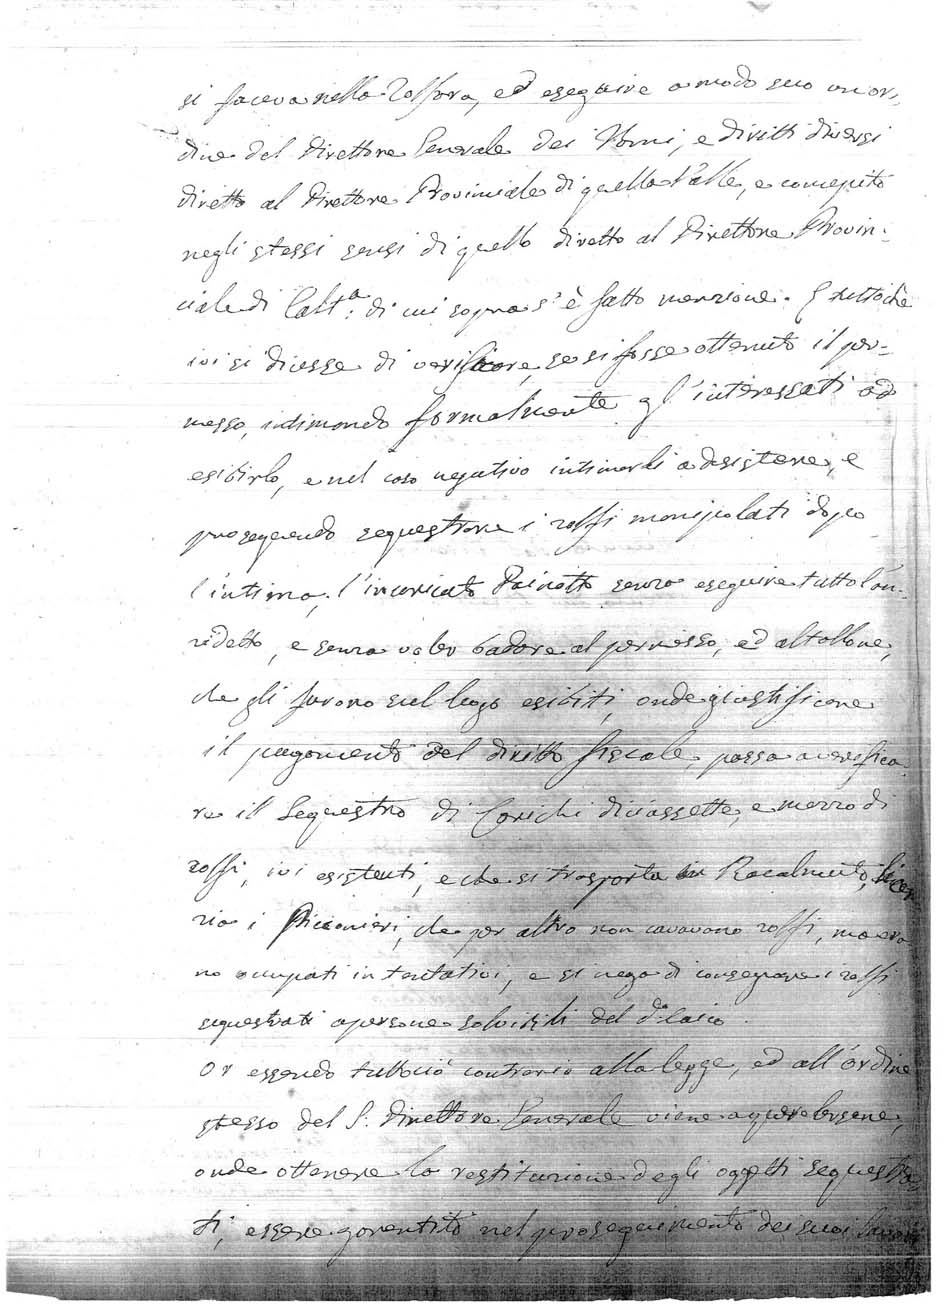 si faceva nella Zolfara, ed eseguire a modo suo un or-
dine del Direttore Generale dei Rami, e diritti diversi
diretto al Direttore Provinciale di quella Valle, e concepito
negli stessi sensi di quello diretto al Direttore Provin-
ciale di Calt.a di cui sopra s'è fatto menzione. E tuttochè
ivi si dicesse di verificare, se si fosse ottenuto il per-
messo, intimando formalmente gl'interessati ad
esibirlo, e nel caso negativo intimarli a desistere, e
proseguendo sequestrare i zolfi manipolati dopo
l'intima; l'incaricato senza eseguire tutto l'an-
zidetto, e senza voler badare al permesso, ed al tallone,
che gli furono sul luogo esibiti, onde giustificare
il pagamento del diritto fiscale, passa a verifica-
re il Sequestro di Carichi diciassette, e mezzo di
zolfi, ivi esistenti, e che si trasporta in Racalmuto, licen
zia i Picconieri, che per altro non cavavano zolfi, ma era
no occupati in tentativi, e si nega di consegnare i zolfi
sequestrati a persone solvibili del
Or essendo tuttociò contrario alla legge, ed all'ordine
stesso del S. Direttore Generale viene a querelarsene,
onde ottenere la restituzione degli oggetti sequestra
ti, essere garentito nel proseguimento dei suoi lavori